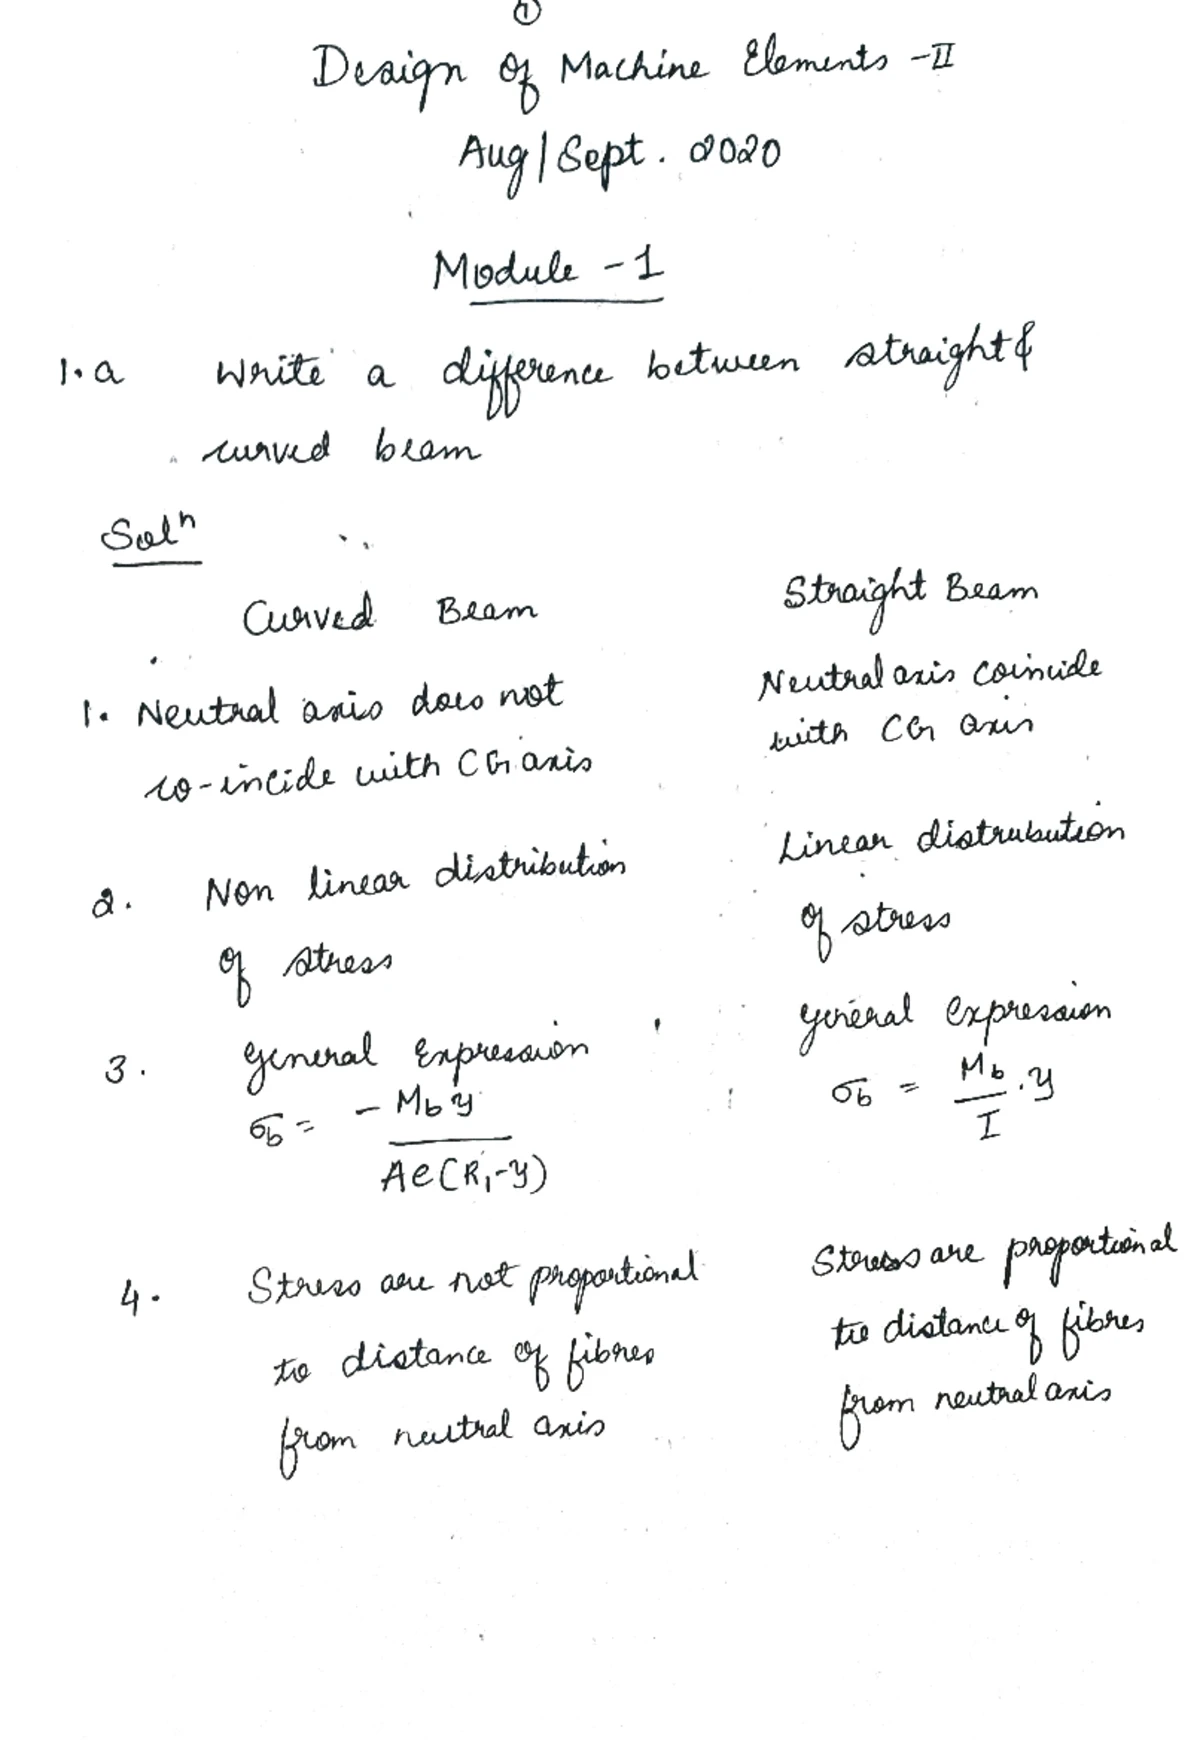 ①
Design of Machine Elements -II
Aug/Sept. 2020
Module -1
1.a Write a difference between straight &
curved beam
Solⁿ
Curved Beam
1. Neutral axis does not
co-incide with CG axis
2. Non linear distribution
of stress
3. general Expression
σb = - Mb y / Ae(R1-y)
4. Stress are not proportional
to distance of fibres
from neutral axis
Straight Beam
Neutral axis coincide
with CG axis
Linear distrubution
of stress
general expression
σb = Mb / I . y
Stress are proportional
to distance of fibres
from neutral axis